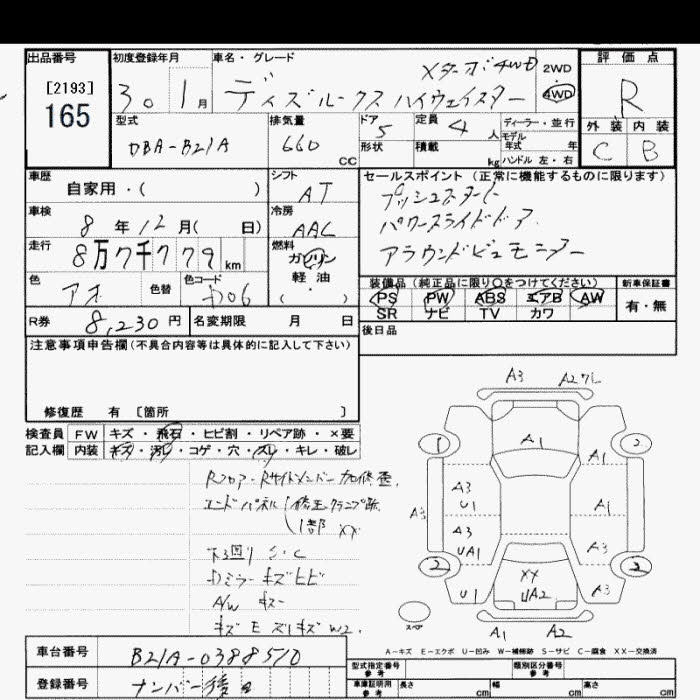 出品番号
[2193]
165
初度登録年月
30 1月
車名・グレード
Xターボ 4WD
デイズルークス ハイウェイスター
2WD
4WD
評価点
R
外装 内装
C B
型式
DBA-B21A
排気量
660 CC
ドア
5
形状
定員
4 人
積載 kg
ディーラー・並行
モデル
年式 年
ハンドル 左・右
車歴
自家用・( )
シフト
AT
車検
8年12月( 日)
冷房
AAC
走行
8万7千779 km
燃料
ガソリン
軽・油
( ・ )
色
アオ
色替
色コード
セールスポイント (正常に機能するものに限ります)
プッシュスタート
パワースライドドア
アラウンドビューモニター
装備品 (純正品に限り○をつけてください)
PS PW ABS エアB AW
SR ナビ TV カワ
新車保証書
有・無
R券 8,230円
名変期限 月 日
後日品
注意事項申告欄(不具合内容等は具体的に記入して下さい)
修復歴 有 [箇所 ]
検査員 FW キズ・飛石・ヒビ割・リペア跡・×要
記入欄 内装 キズ・汚レ・コゲ・穴・スレ・キレ・破レ
Rフロア・Rサイドメンバー 加修歪
エンドパネル 修正クランプ跡
1部 XX
下回り S・C
Dミラー キズヒビ
A/W キズ
A3 A2
1 A1 2
A3
U1
A1
A3
A3
UA1
A3
2 XX 2
U1 UA2 A3
A1 A2
スペア
A-キズ E-エクボ U-凹み W-補修跡 S-サビ C-腐食 XX-交換済
車台番号
B21A-0388510
登録番号
ナンバー後日
型式指定番号
参考
類別区分番号
参考
車庫証明用
参考
長さ cm
幅 cm
高さ cm